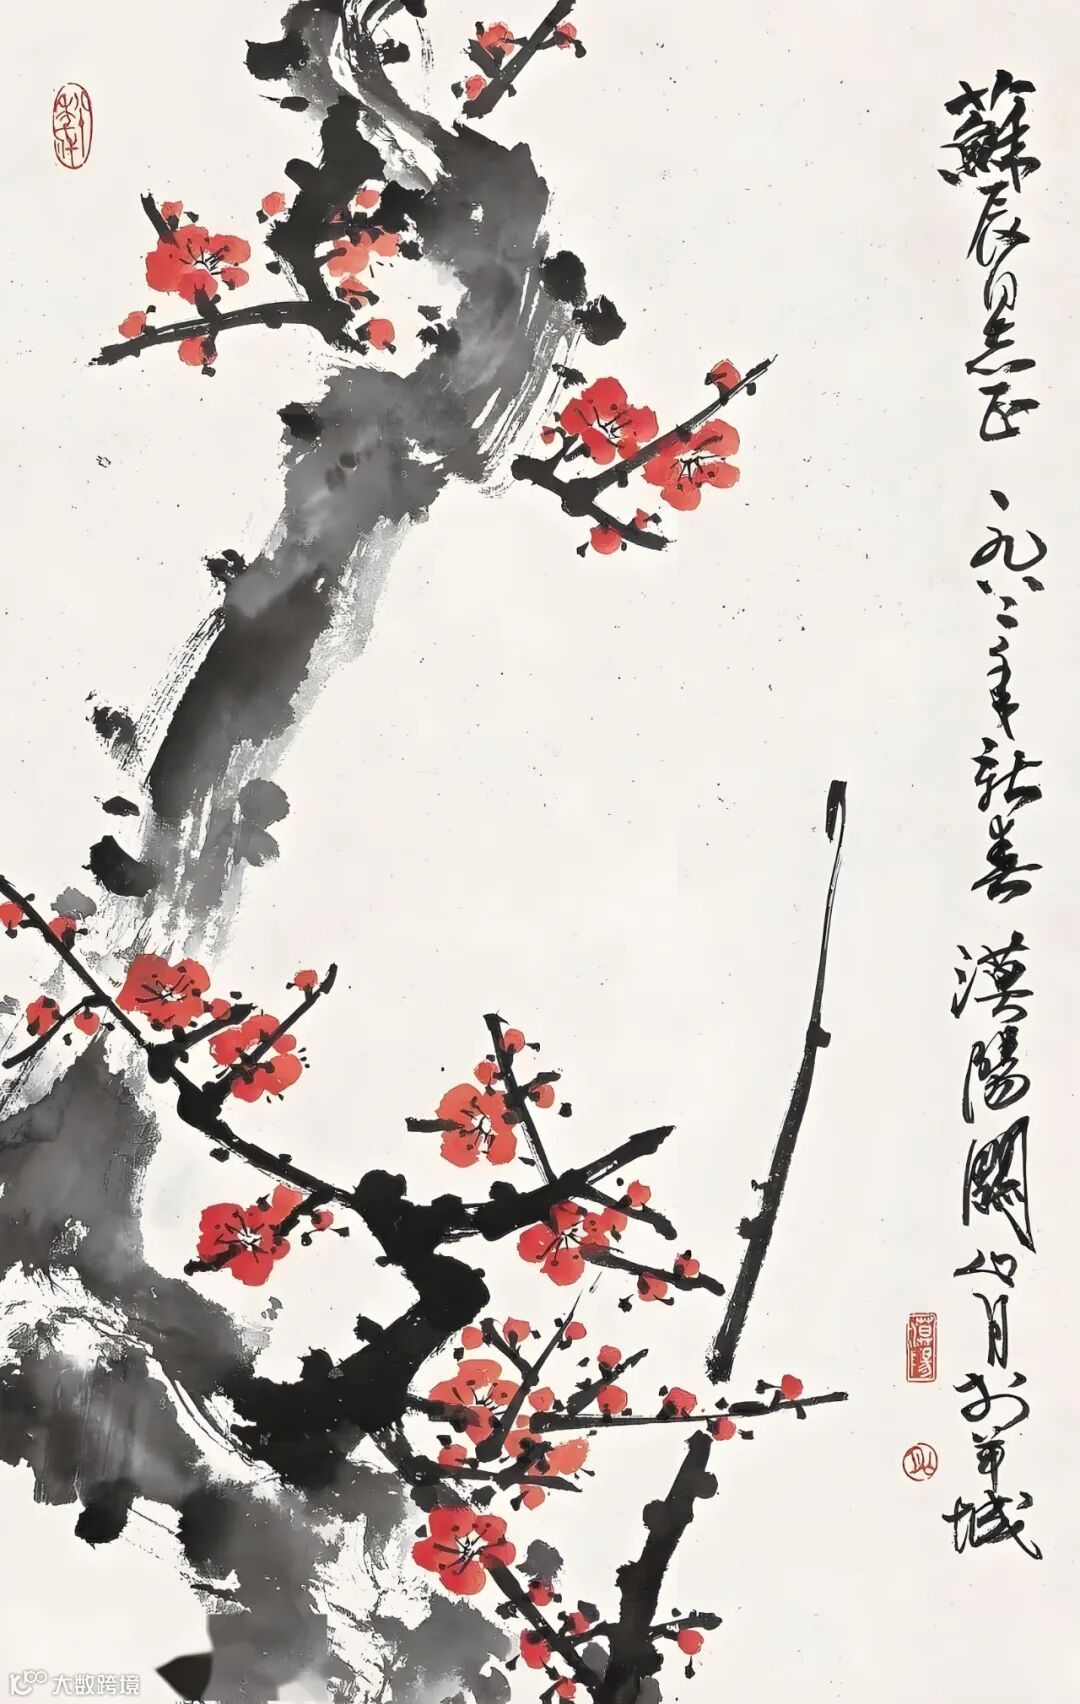 蘇辰同志正 一九八二年新春 漠陽關山月於羊城
漠陽
大数跨境